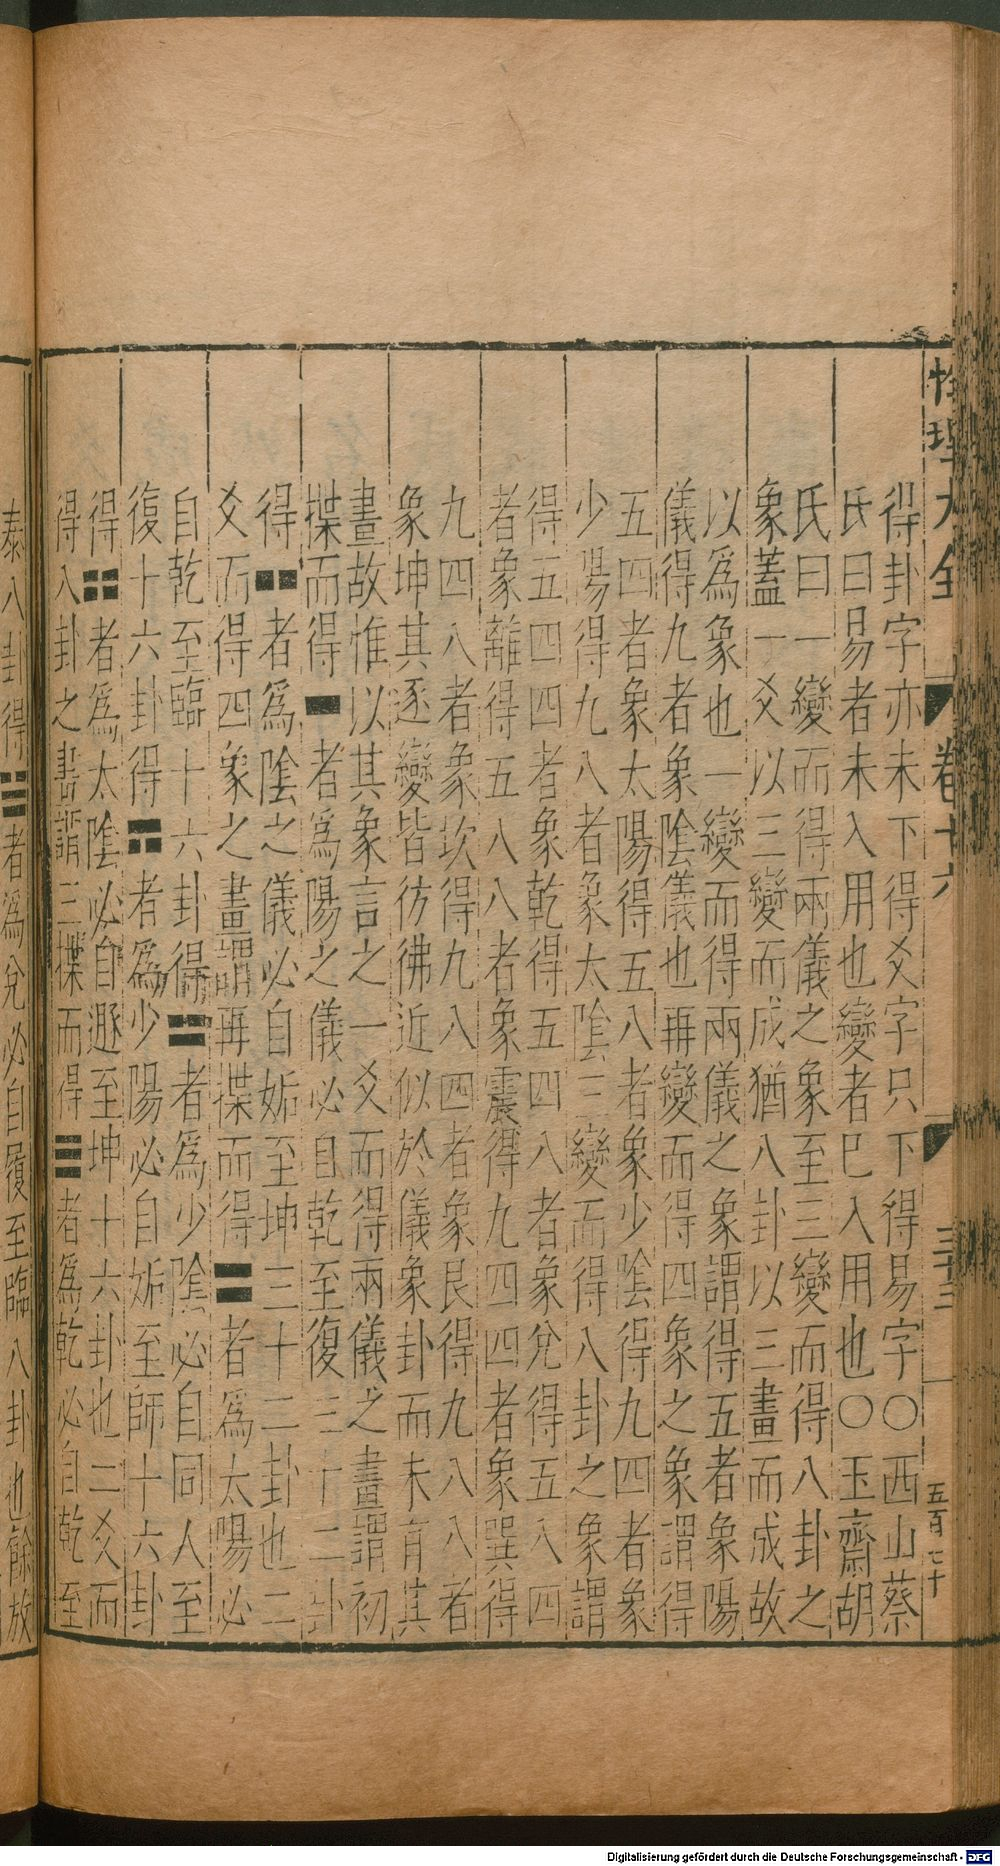 性理大全 卷十六 三十三 五百七十
得卦字亦未下得爻字只下得易字○西山蔡
氏曰易者未入用也變者已入用也○玉齋胡
氏曰一變而得兩儀之象至三變而得八卦之
象蓋一爻以三變而成猶八卦以三畫而成故
以爲象也一變而得兩儀之象謂得五者象陽
儀得九者象陰儀也再變而得四象之象謂得
五四者象太陽得五八者象少陰得九四者象
少陽得九八者象太陰三變而得八卦之象謂
得五四四者象乾得五四八者象兌得五八四
者象離得五八八者象震得九四四者象巽得
九四八者象坎得九八四者象艮得九八八者
象坤其逐變皆彷彿近似於儀象卦而未有其
畫故惟以其象言之一爻而得兩儀之畫謂初
揲而得⚊者爲陽之儀必自乾至復三十二卦
得⚋者爲陰之儀必自姤至坤三十二卦也二
爻而得四象之畫謂再揲而得⚌者爲太陽必
自乾至臨十六卦得⚍者爲少陰必自同人至
復十六卦得⚎者爲少陽必自姤至師十六卦
得⚏者爲太陰必自遯至坤十六卦也三爻而
得八卦之畫謂三揲而得☰者爲乾必自乾至
泰八卦得☱者爲兌必自履至臨八卦也餘放
Digitalisierung gefördert durch die Deutsche Forschungsgemeinschaft - DFG